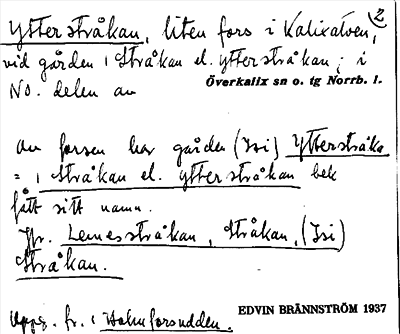 2
Ytterstråkan, liten fors i Kalixälven,
vid gården 1 Stråkan el. ytterstråkan; i
Överkalix sn o. tg Norrb. l.
No. delen av
Av forsen har gården (Isi) Ytterstråka
= 1 Stråkan el. ytterstråkan bek
fått sitt namn.
Jfr. Lemesstråkan, Stråkan, (Isi)
Stråkan.
EDVIN BRÄNNSTRÖM 1937
Uppg. fr. 1 Holmforsudden.